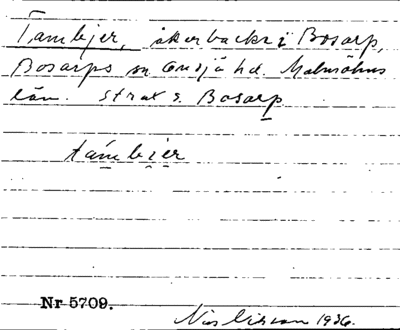 Tambjer, åkerbacke i Bosarp,
Bosarps sn Onsjö hd. Malmöhus
län. Strax S. Bosarp
tambjer
Nr 5709.
1936.